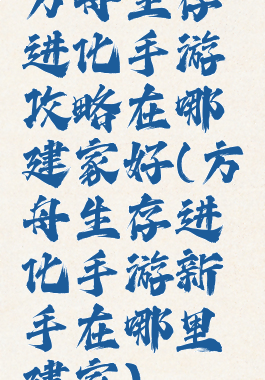 方舟生存
进化手游
攻略在哪
建家好(方
舟生存进
化手游新
手在哪里
建家)